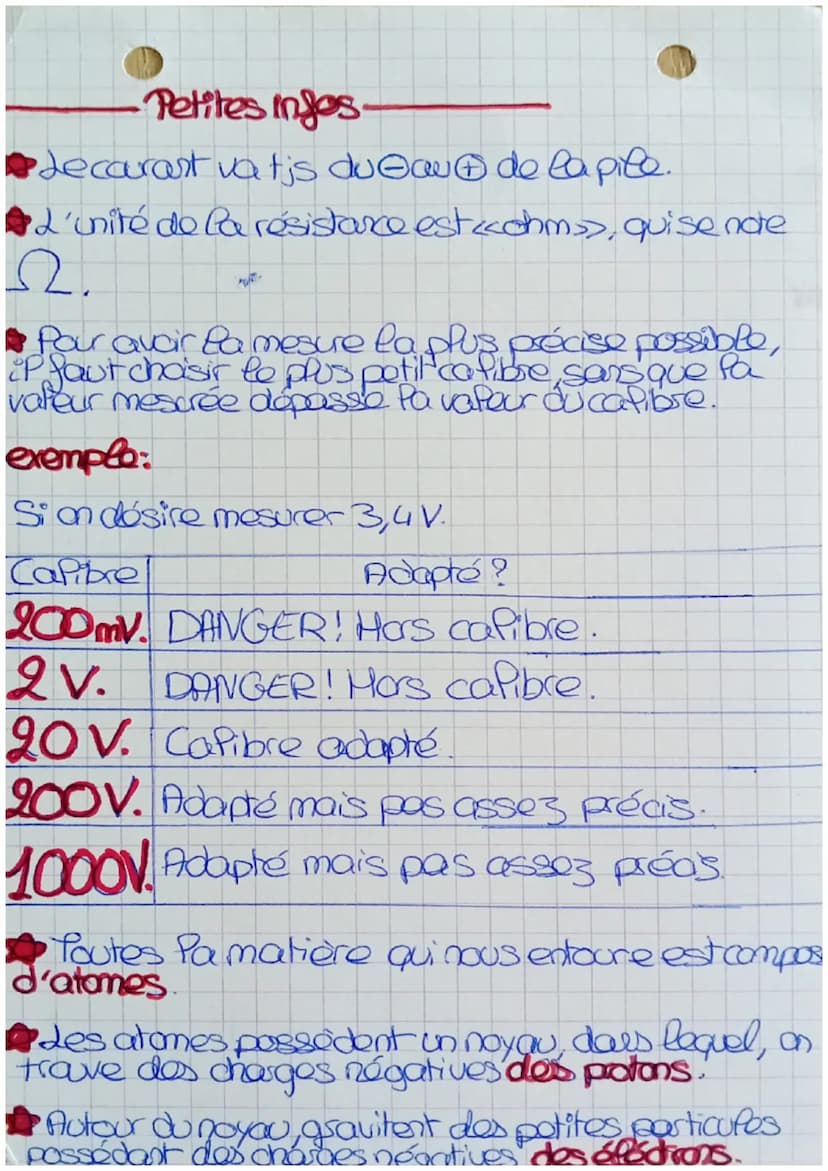 Petites infos
Le courant va tjs du ⊖ au ⊕ de la pile.
L'unité de la résistance est «ohm», qui se note
Ω.
Pour avoir la mesure la plus précise possible,
il faut choisir le plus petit calibre, sans que la
valeur mesurée dépasse la valeur du calibre.
exemple:
Si on désire mesurer 3,4 V.
Calibre Adapté ?
200mV. DANGER! Hors calibre.
2 V. DANGER! Hors calibre.
20 V. Calibre adapté.
200V. Adapté mais pas assez précis.
1000V. Adapté mais pas assez précis.
Toutes la matière qui nous entoure est compos
d'atomes.
Les atomes possèdent un noyau, dans lequel, on
trouve des charges négatives des protons.
Autour du noyau, gravitent des petites particules
possédant des charges négatives des éléctrons.